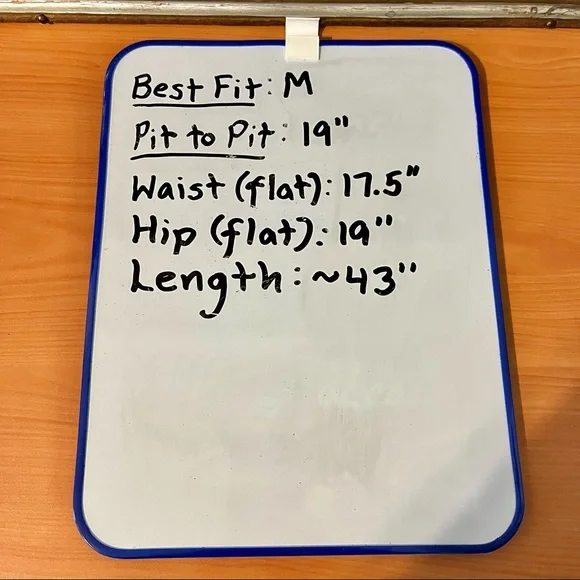 Best Fit: M
Pit to Pit: 19"
Waist (flat): 17.5"
Hip (flat): 19"
Length: ~43"